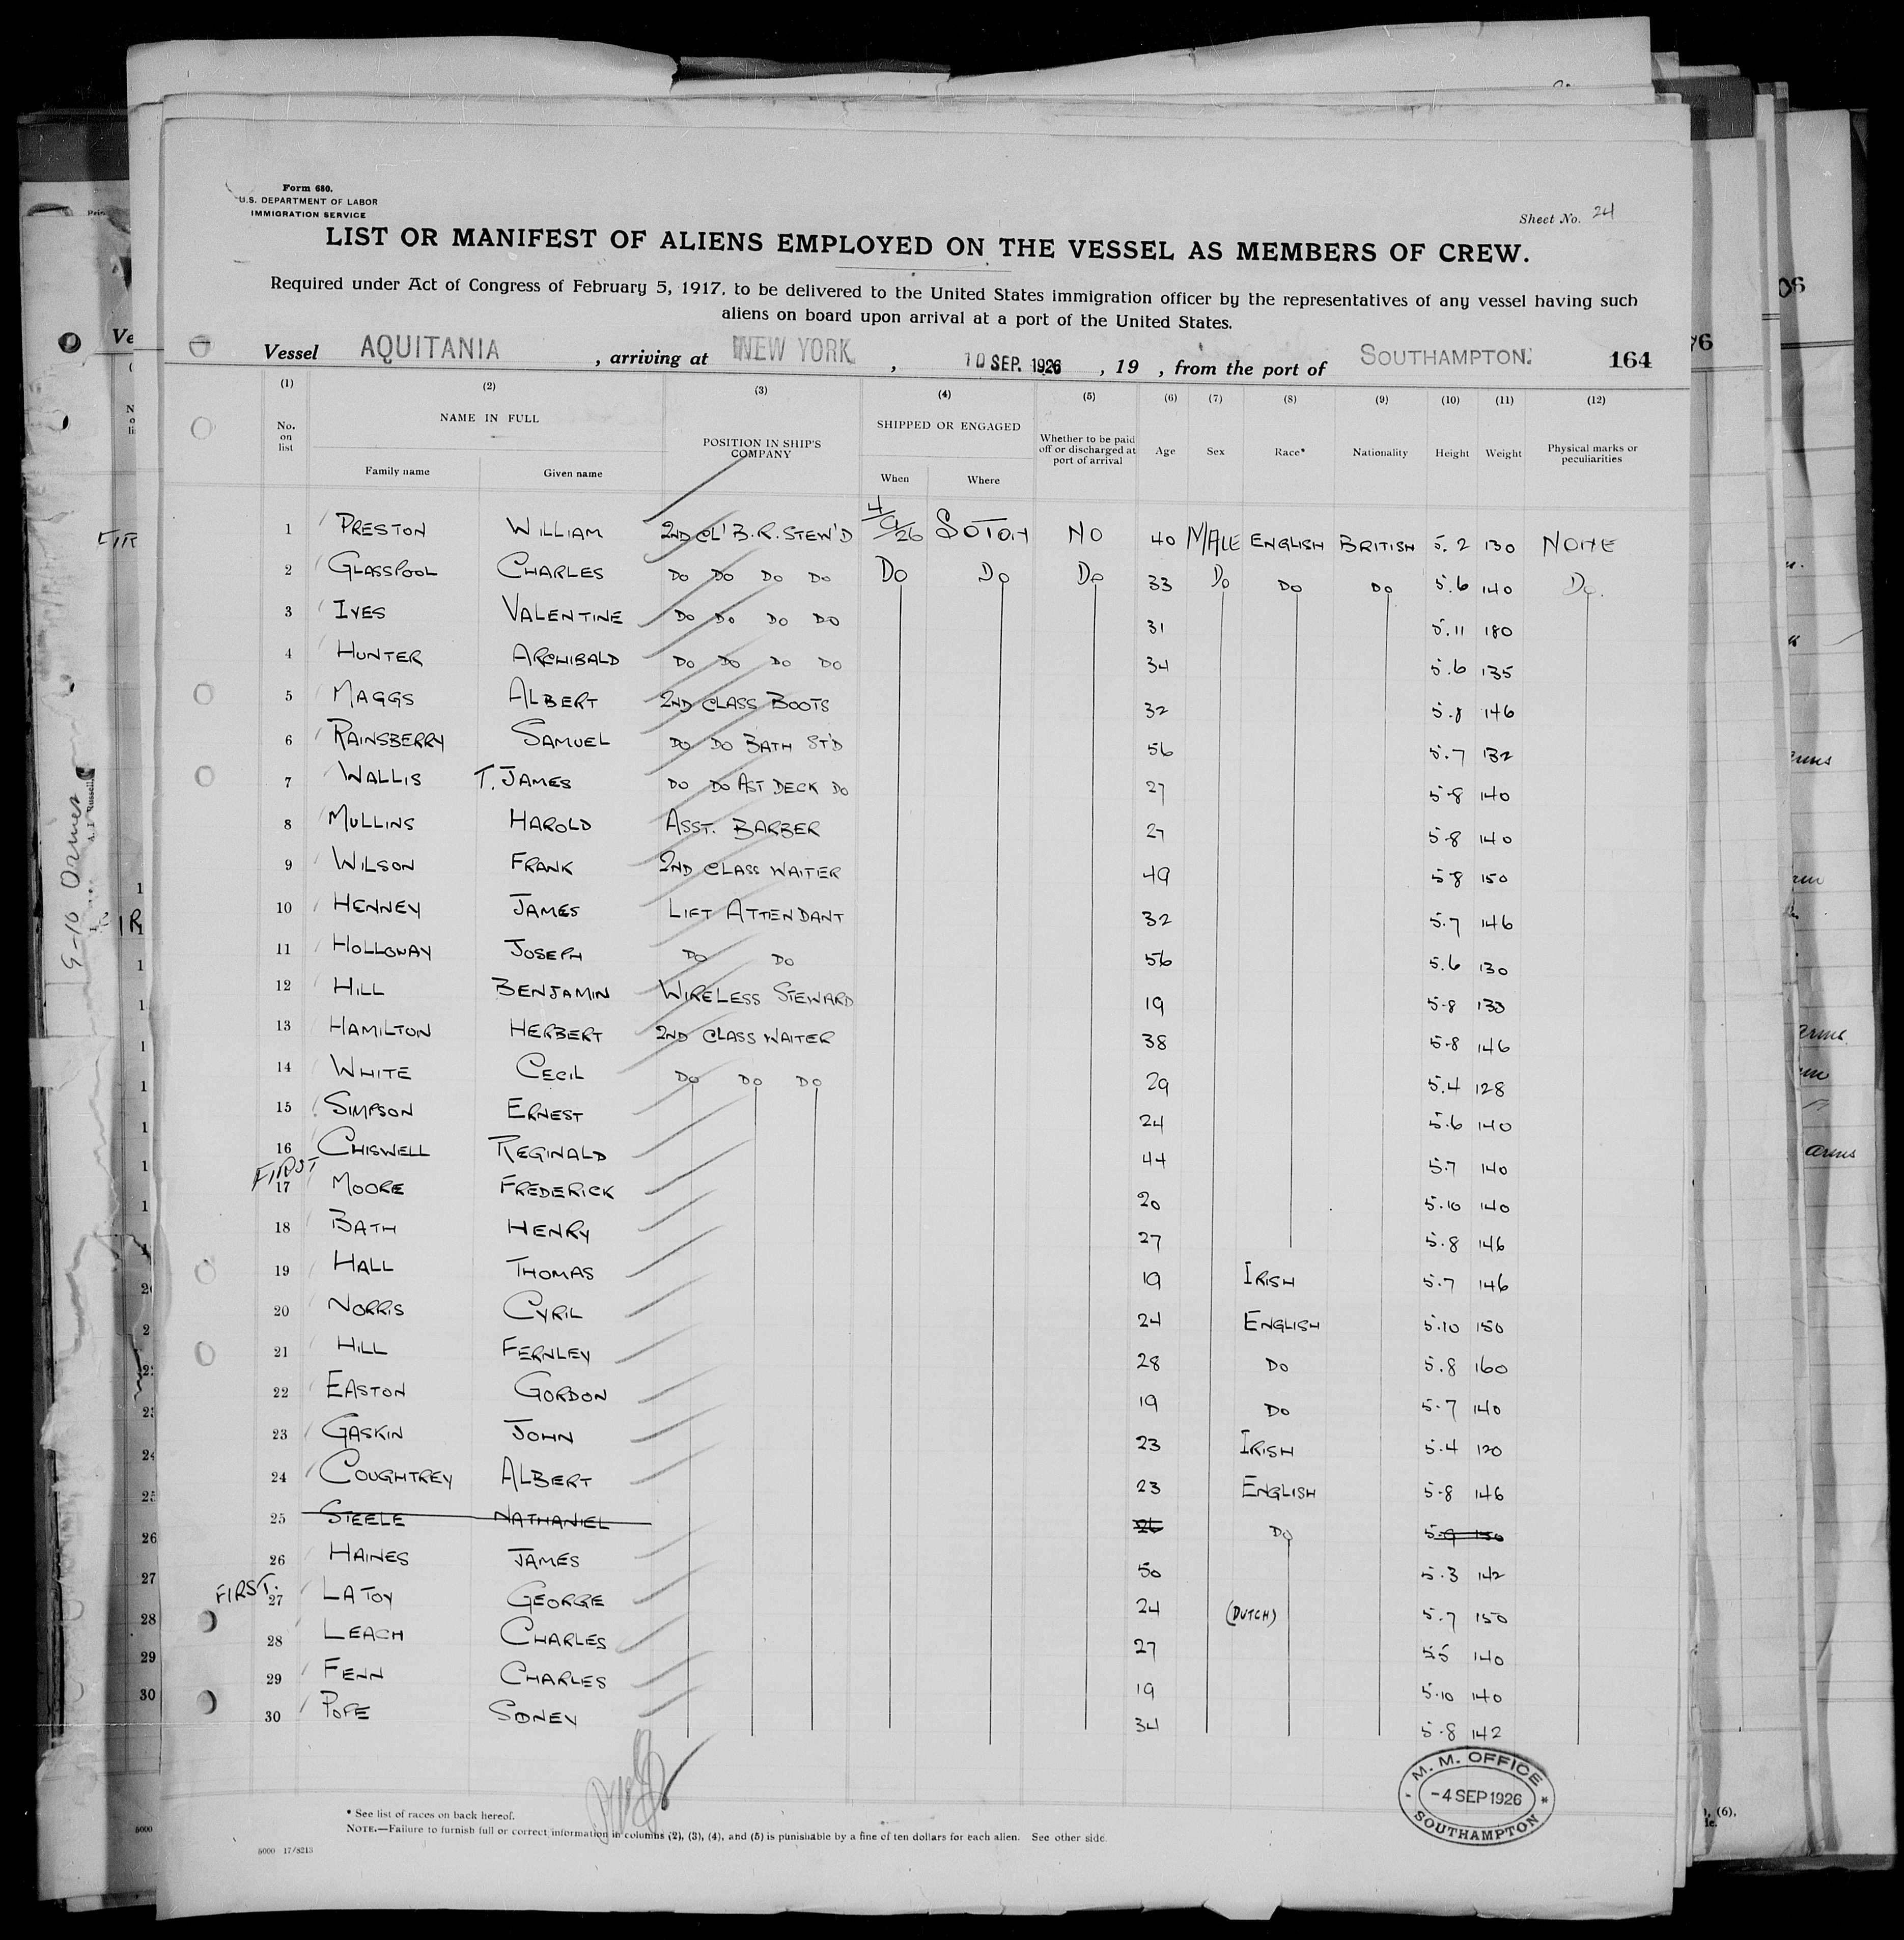 Form 680.
U.S. DEPARTMENT OF LABOR
IMMIGRATION SERVICE
Sheet No. 24
LIST OR MANIFEST OF ALIENS EMPLOYED ON THE VESSEL AS MEMBERS OF CREW.
Required under Act of Congress of February 5, 1917, to be delivered to the United States immigration officer by the representatives of any vessel having such
aliens on board upon arrival at a port of the United States.
Vessel AQUITANIA , arriving at NEW YORK , 10 SEP. 1926 , 19 , from the port of SOUTHAMPTON. 164
(1) (2) (3) (4) (5) (6) (7) (8) (9) (10) (11) (12)
No. on list NAME IN FULL Family name Given name POSITION IN SHIP'S COMPANY SHIPPED OR ENGAGED When Where Whether to be paid off or discharged at port of arrival Age Sex Race* Nationality Height Weight Physical marks or peculiarities
1 PRESTON WILLIAM 2ND CL' B.R. STEW'D 4/9/26 SOTON NO 40 MALE ENGLISH BRITISH 5.2 130 NONE
2 GLASSPOOL CHARLES DO DO DO DO DO DO DO 33 DO DO DO 5.6 140 DO.
3 IVES VALENTINE DO DO DO DO 31 5.11 180
4 HUNTER ARCHIBALD DO DO DO DO 34 5.6 135
5 MAGGS ALBERT 2ND CLASS BOOTS 32 5.8 146
6 RAINSBERRY SAMUEL DO DO BATH ST'D 56 5.7 132
7 WALLIS T. JAMES DO DO AST DECK DO 27 5-8 140
8 MULLINS HAROLD ASST. BARBER 27 5-8 140
9 WILSON FRANK 2ND CLASS WAITER 49 5-8 150
10 HENNEY JAMES LIFT ATTENDANT 32 5.7 146
11 HOLLOWAY JOSEPH DO DO 56 5.6 130
12 HILL BENJAMIN WIRELESS STEWARD 19 5-8 133
13 HAMILTON HERBERT 2ND CLASS WAITER 38 5-8 146
14 WHITE CECIL DO DO DO 29 5.4 128
15 SIMPSON ERNEST 24 5.6 140
16 CHISWELL REGINALD 44 5.7 140
FIRST 17 MOORE FREDERICK 20 5.10 140
18 BATH HENRY 27 5.8 146
19 HALL THOMAS 19 IRISH 5.7 146
20 NORRIS CYRIL 24 ENGLISH 5.10 150
21 HILL FERNLEY 28 DO 5.8 160
22 EASTON GORDON 19 DO 5-7 140
23 GASKIN JOHN 23 IRISH 5.4 120
24 COUGHTREY ALBERT 23 ENGLISH 5-8 146
25 STEELE NATHANIEL 26 DO 5.9 150
26 HAINES JAMES 50 5.3 142
FIRST. 27 LA TOY GEORGE 24 (DUTCH) 5.7 150
28 LEACH CHARLES 27 5.5 140
29 FENN CHARLES 19 5.10 140
30 POPE SIDNEY 34 5-8 142
M. M. OFFICE
-4 SEP 1926
SOUTHAMPTON
* See list of races on back hereof.
NOTE.—Failure to furnish full or correct information in columns (2), (3), (4), and (5) is punishable by a fine of ten dollars for each alien. See other side.
5000 17/8213